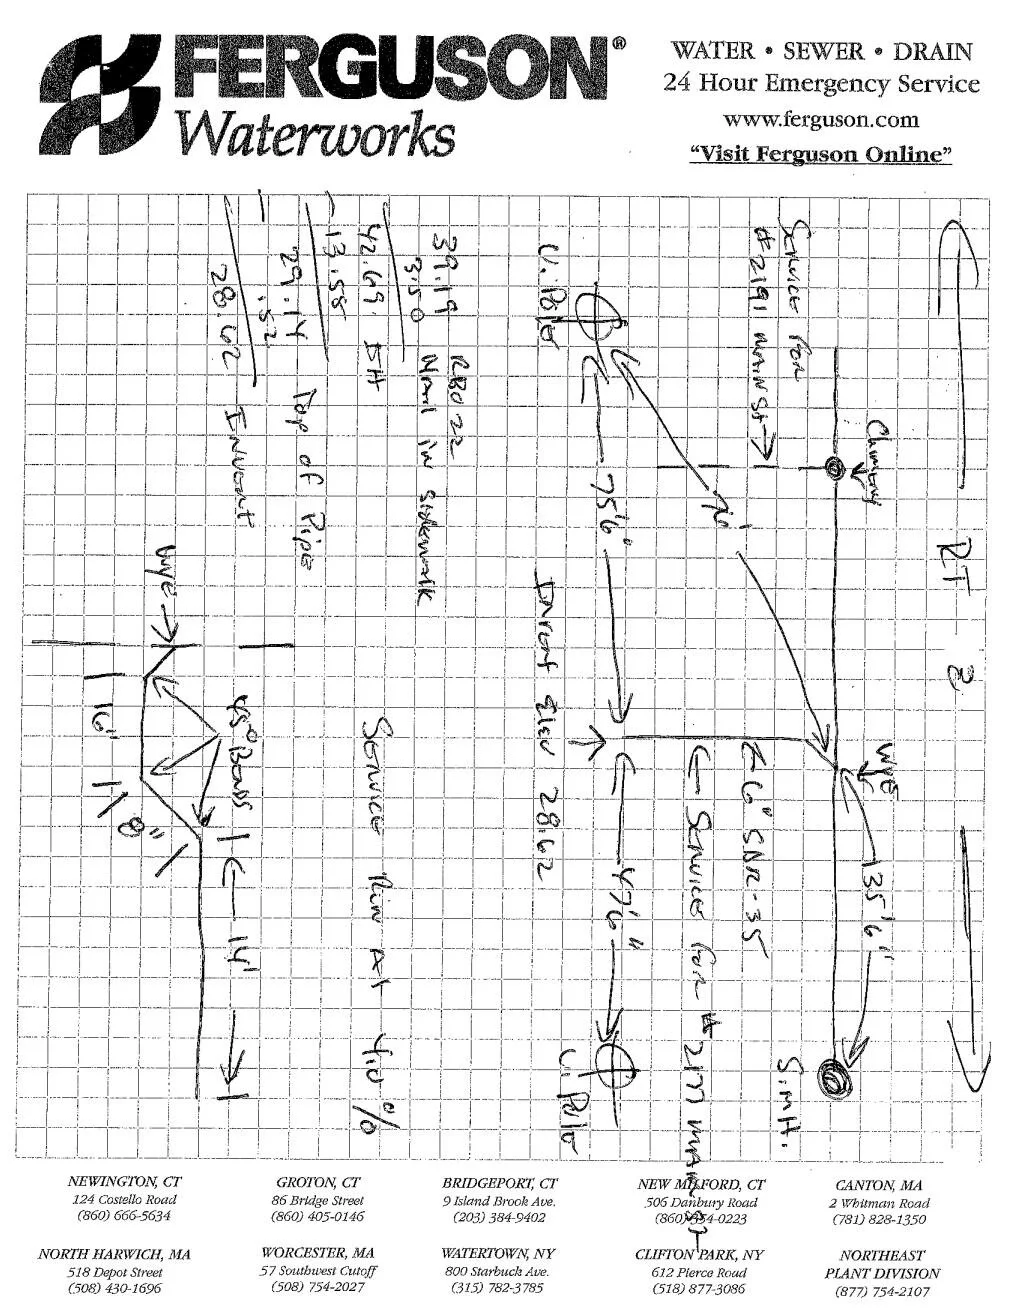 FERGUSON®
Waterworks
WATER • SEWER • DRAIN
24 Hour Emergency Service
www.ferguson.com
"Visit Ferguson Online"
RT 3
Chimney
Wye
135'6"
S.MH.
Service For
#2191 Main St
6" SDR-35
Service For #2177 Main St
71'
U. Pole
75'6"
47'6"
U. Pole
Invert Elev 28.62
39.19 RBO22
3.50 Nail in Sidewalk
42.69 IH
-13.55
29.14 Top of Pipe
.52
28.62 Invert
Service Ran At 4.0%
45° Bends
14'
Wye
16"
18"
NEWINGTON, CT
124 Costello Road
(860) 666-5634
GROTON, CT
86 Bridge Street
(860) 405-0146
BRIDGEPORT, CT
9 Island Brook Ave.
(203) 384-9402
NEW MILFORD, CT
506 Danbury Road
(860) 354-0223
CANTON, MA
2 Whitman Road
(781) 828-1350
NORTH HARWICH, MA
518 Depot Street
(508) 430-1696
WORCESTER, MA
57 Southwest Cutoff
(508) 754-2027
WATERTOWN, NY
800 Starbuck Ave.
(315) 782-3785
CLIFTON PARK, NY
612 Pierce Road
(518) 877-3086
NORTHEAST
PLANT DIVISION
(877) 754-2107